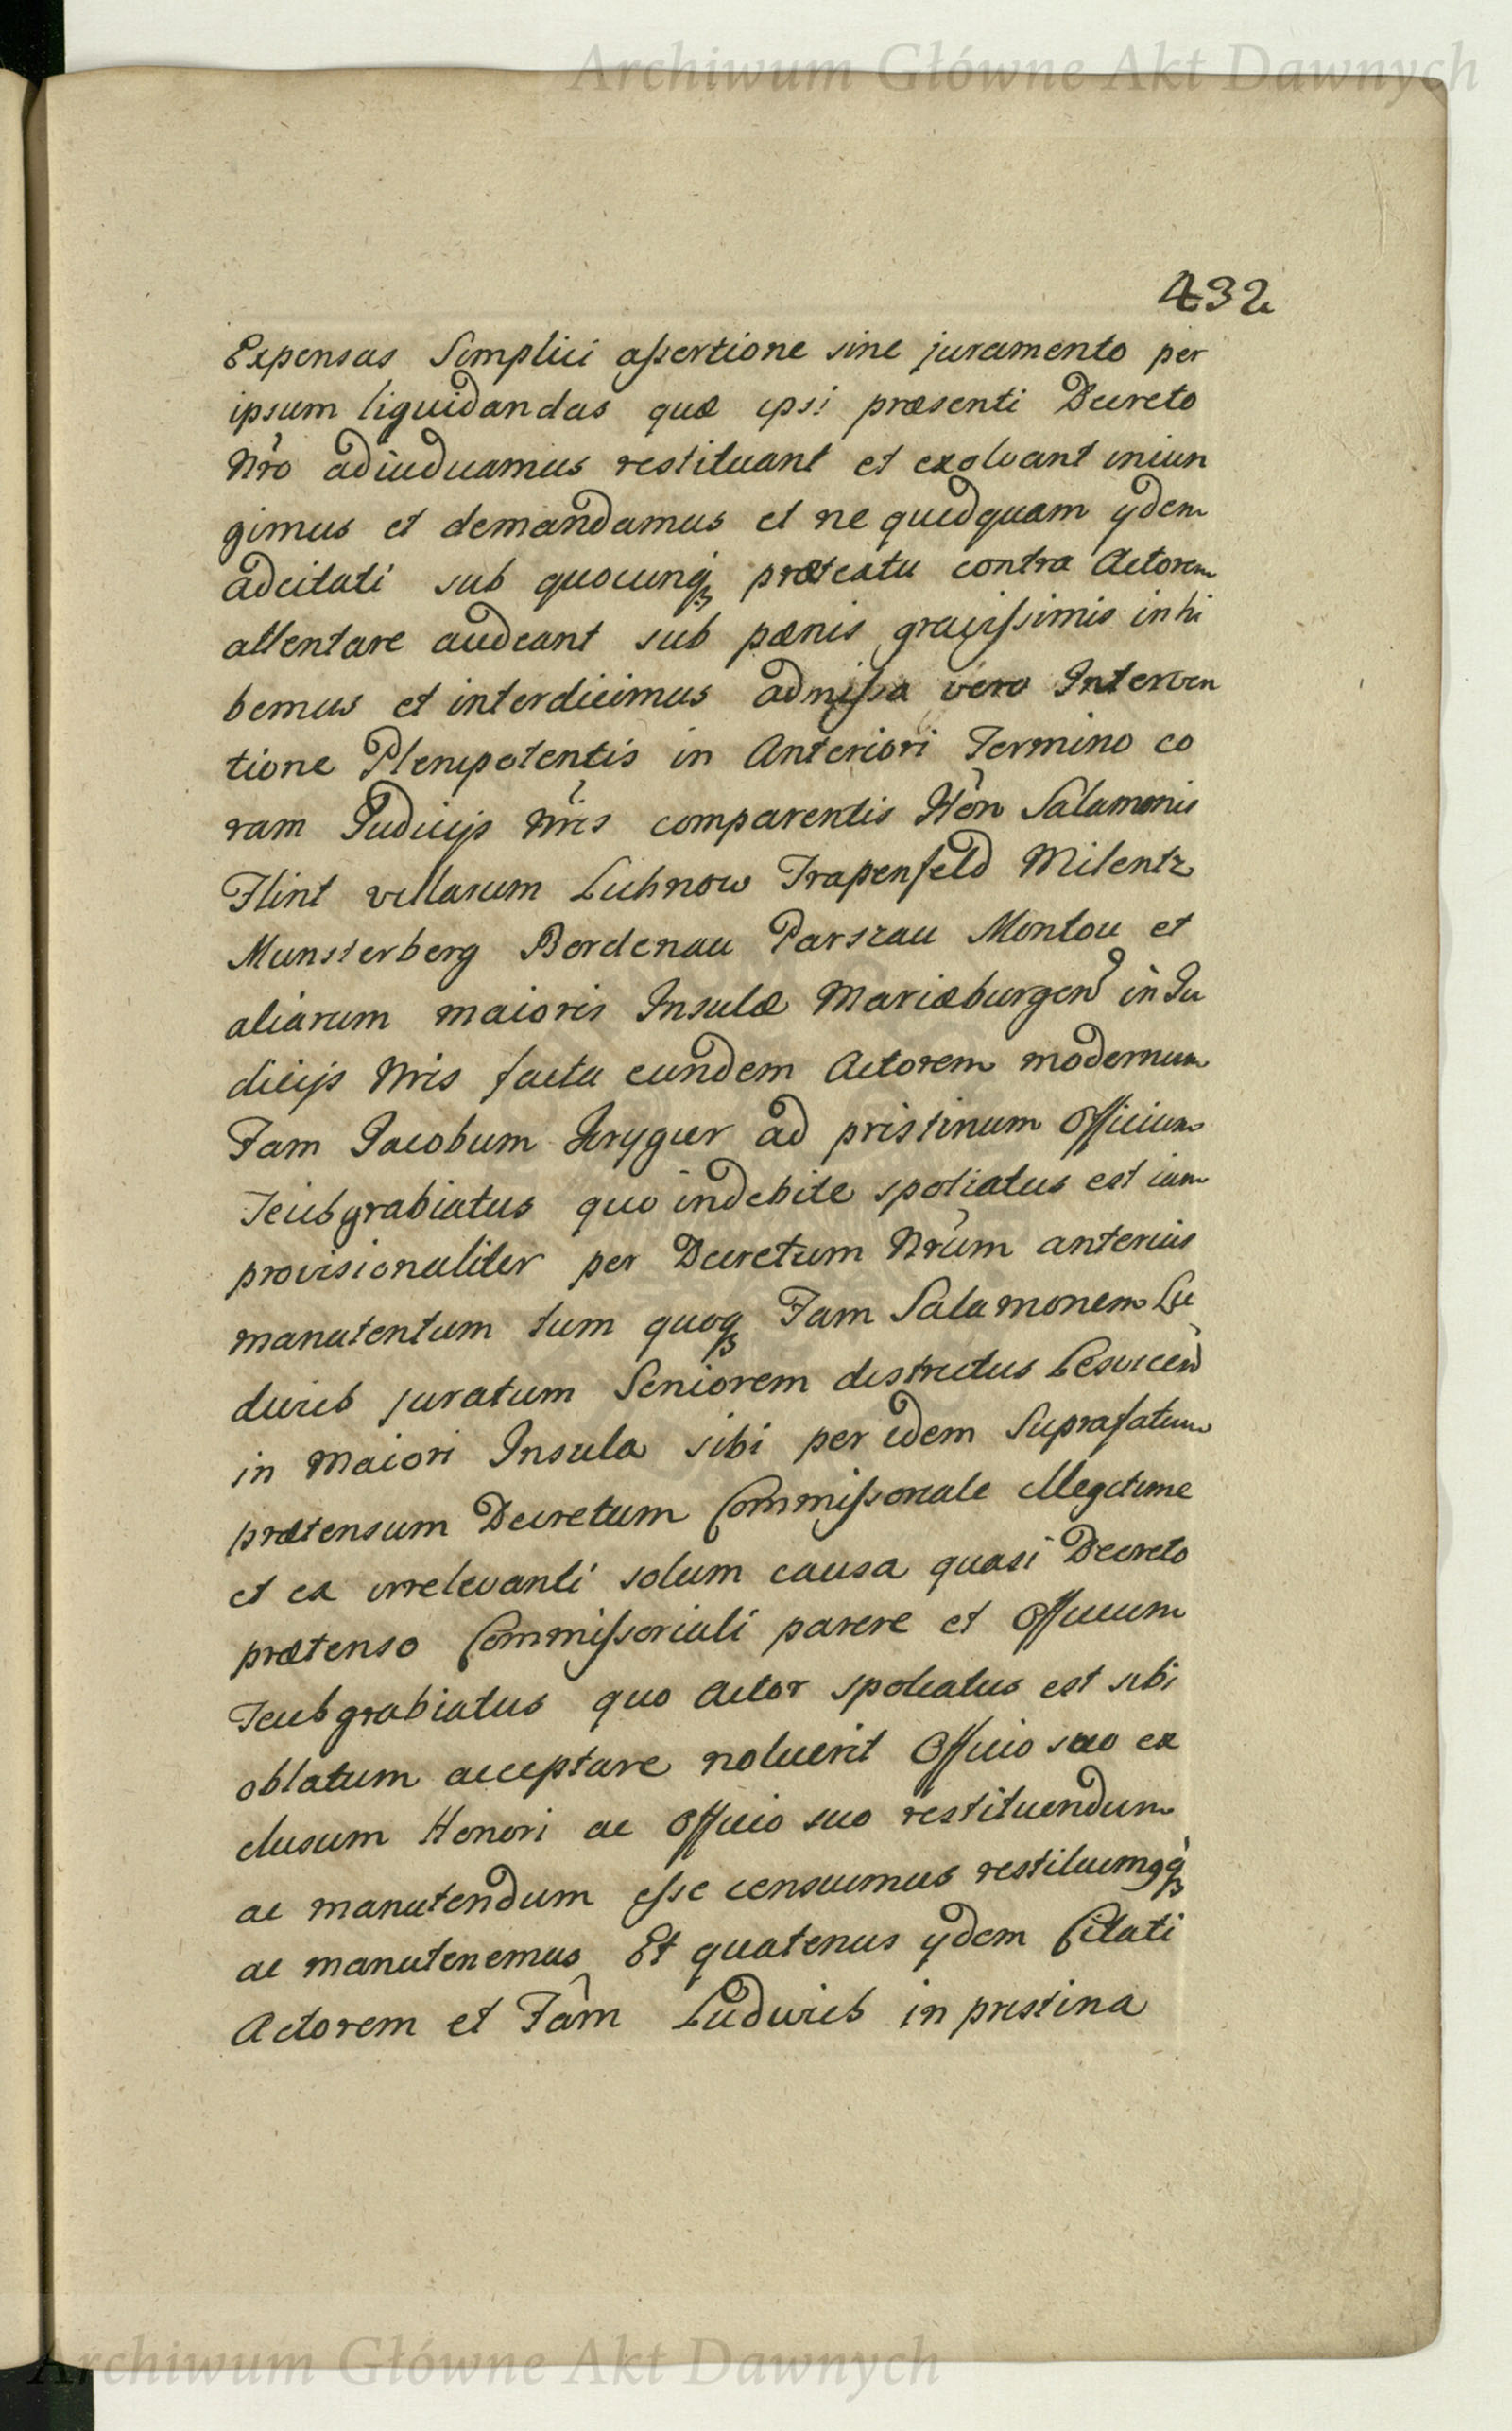 Archiwum Główne Akt Dawnych
432
Expensas Simplici assertione sine juramento per
ipsum liquidandas quæ ipsi præsenti Decreto
Nro adiudicamus restituant et exolvant iniun
gimus et demandamus et ne quidquam ydem
adcitati sub quocunq prætextu contra Actorem
attentare audeant sub pænis gravissimis inhi
bemus et interdicimus admissa vero Interven
tione Plenipotentis in Anteriori Termino co
ram Judicijs Nris comparentis Hon Salamonis
Flint villarum Lichnow Trapenfeld Milentz
Munsterberg Bordenau Parszau Montou et
aliarum maioris Insulæ Mariæburgen in Ju
dicijs Nris facta eundem Actorem modernum
Fam Jacobum Kryger ad pristinum Officium
Teichgrabiatus quo indebite spoliatus est iam
provisionaliter per Decretum Nrum anterius
manutentum tum quoq Fam Salamonem Lu
dwich juratum Seniorem districtus Leswicen
in Maiori Insula sibi per idem Suprafatum
prætensum Decretum Commissoriale illegitime
et ex irrelevanti solum causa quasi Decreto
prætenso Commissoriali parere et Officium
Teichgrabiatus quo Actor spoliatus est sibi
oblatum acceptare noluerit Officio suo ex
clusum Honori ac Officio suo restituendum
ac manutendum esse censuimus restituimgq
ac manutenemus Et quatenus ydem Citati
Actorem et Fam Ludwich in pristina
Archiwum Główne Akt Dawnych